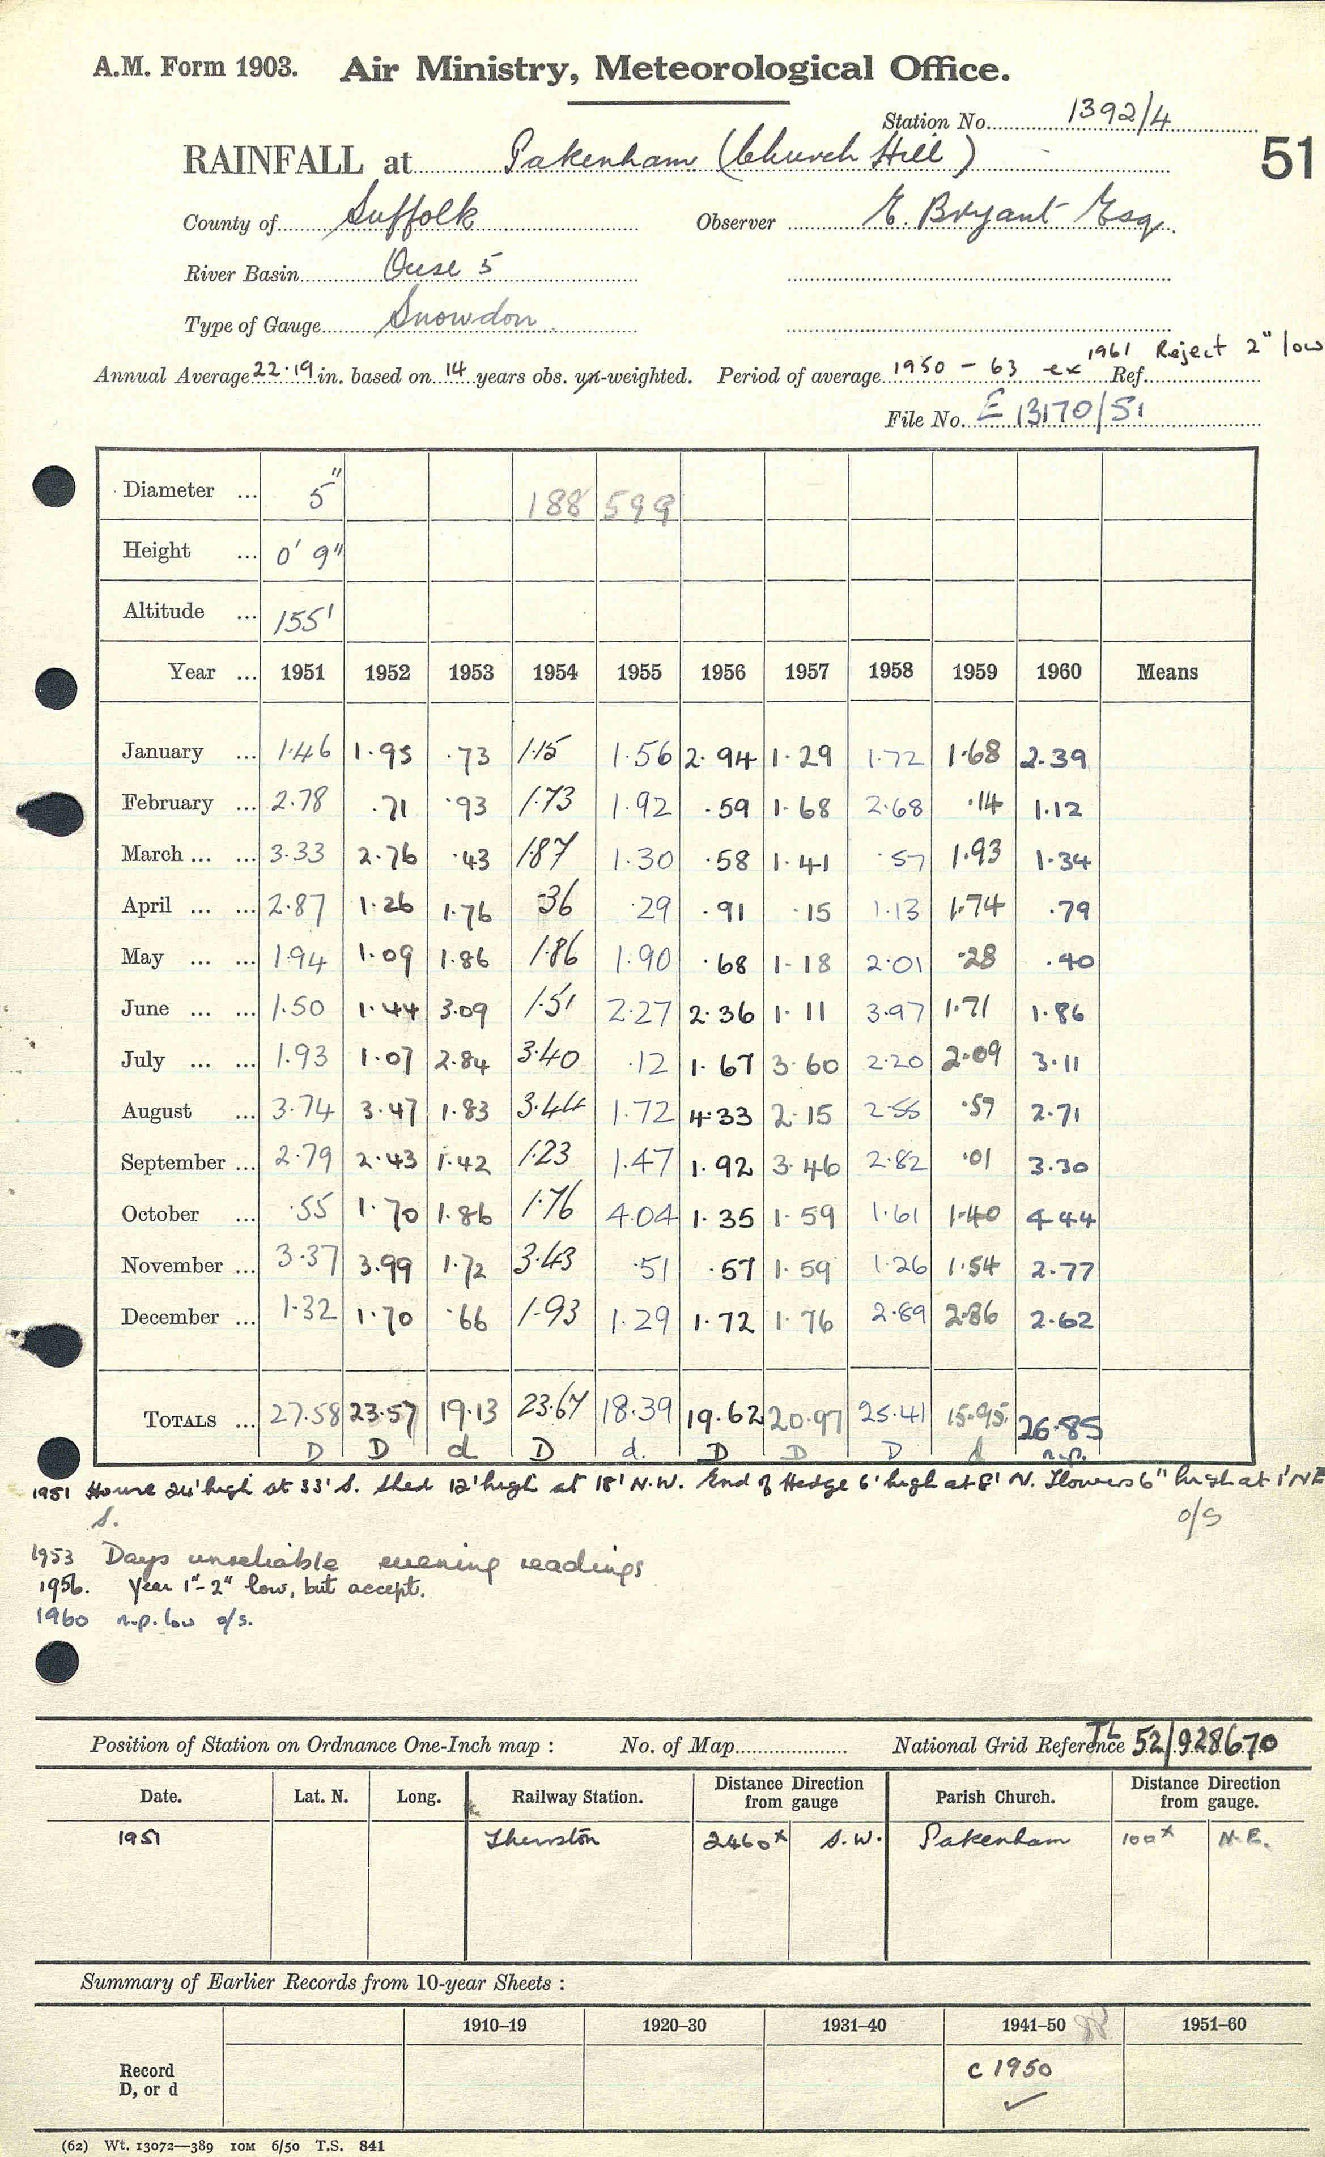 A.M. Form 1903. Air Ministry, Meteorological Office.
Station No. 1392/4
RAINFALL at Pakenham (Church Hill)
51
County of Suffolk Observer E. Bryant Esq.
River Basin Ouse 5
Type of Gauge Snowdon
1961 Reject 2" low
Annual Average 22.19 in. based on 14 years obs. un-weighted. Period of average 1950 - 63 ex Ref.
File No. E 13170/51
Diameter ... 5" 188 599
Height ... 0' 9"
Altitude ... 155'
Year ... 1951 1952 1953 1954 1955 1956 1957 1958 1959 1960 Means
January ... 1.46 1.95 .73 1.15 1.56 2.94 1.29 1.72 1.68 2.39
February ... 2.78 .71 .93 1.73 1.92 .59 1.68 2.68 .14 1.12
March ... ... 3.33 2.76 .43 1.87 1.30 .58 1.41 .57 1.93 1.34
April ... ... 2.87 1.26 1.76 .36 .29 .91 .15 1.13 1.74 .79
May ... ... 1.94 1.09 1.86 1.86 1.90 .68 1.18 2.01 .28 .40
June ... ... 1.50 1.44 3.09 1.51 2.27 2.36 1.11 3.97 1.71 1.86
July ... ... 1.93 1.07 2.84 3.40 .12 1.67 3.60 2.20 2.09 3.11
August ... 3.74 3.47 1.83 3.44 1.72 4.33 2.15 2.55 .57 2.71
September ... 2.79 2.43 1.42 1.23 1.47 1.92 3.46 2.82 .01 3.30
October ... .55 1.70 1.86 1.76 4.04 1.35 1.59 1.61 1.40 4.44
November ... 3.37 3.99 1.72 3.43 .51 .57 1.59 1.26 1.54 2.77
December ... 1.32 1.70 .66 1.93 1.29 1.72 1.76 2.89 2.86 2.62
TOTALS ... 27.58 23.57 19.13 23.67 18.39 19.62 20.97 25.41 15.95 26.85
D D d D d. D D D d n.p.
1951 House 24' high at 33' S. Shed 12' high at 18' N.W. End of Hedge 6' high at 8' N. Flowers 6" high at 1' NE
S. o/s
1953 Days unreliable evening readings
1956. Year 1"-2" low, but accept.
1960 n.p. low o/s.
Position of Station on Ordnance One-Inch map : No. of Map National Grid Reference TL 52/928670
Date. Lat. N. Long. Railway Station. Distance Direction from gauge Parish Church. Distance Direction from gauge.
1951 Thurston 2460x S.W. Pakenham 100x N.E.
Summary of Earlier Records from 10-year Sheets :
1910–19 1920–30 1931–40 1941–50 1951–60
Record D, or d
c 1950
(62) Wt. 13072—389 10M 6/50 T.S. 841